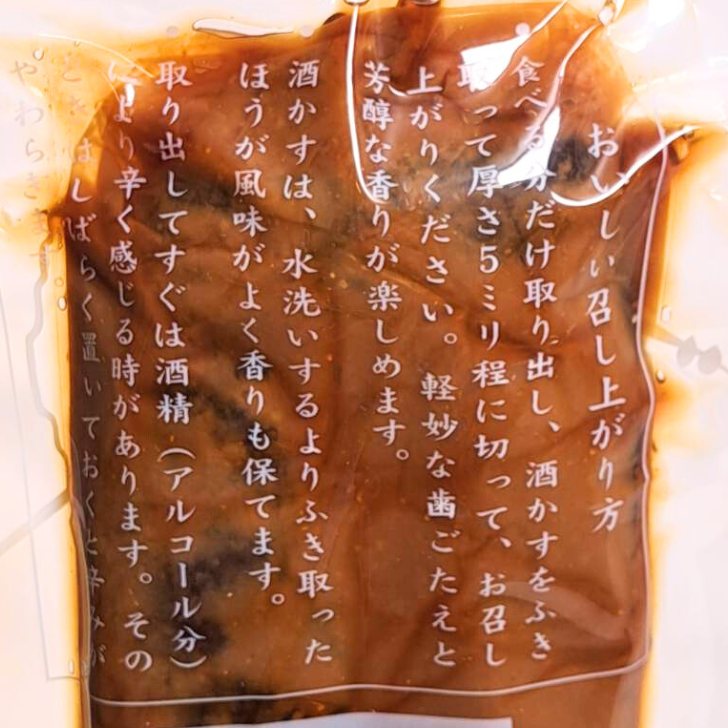 おいしい召し上がり方
食べる分だけ取り出し、酒かすをふき
取って厚さ5ミリ程に切って、お召し
上がりください。軽妙な歯ごたえと
芳醇な香りが楽しめます。
酒かすは、水洗いするよりふき取った
ほうが風味がよく香りも保てます。
取り出してすぐは酒精（アルコール分）
により辛く感じる時があります。その
ときはしばらく置いておくと辛みが
やわらぎます。